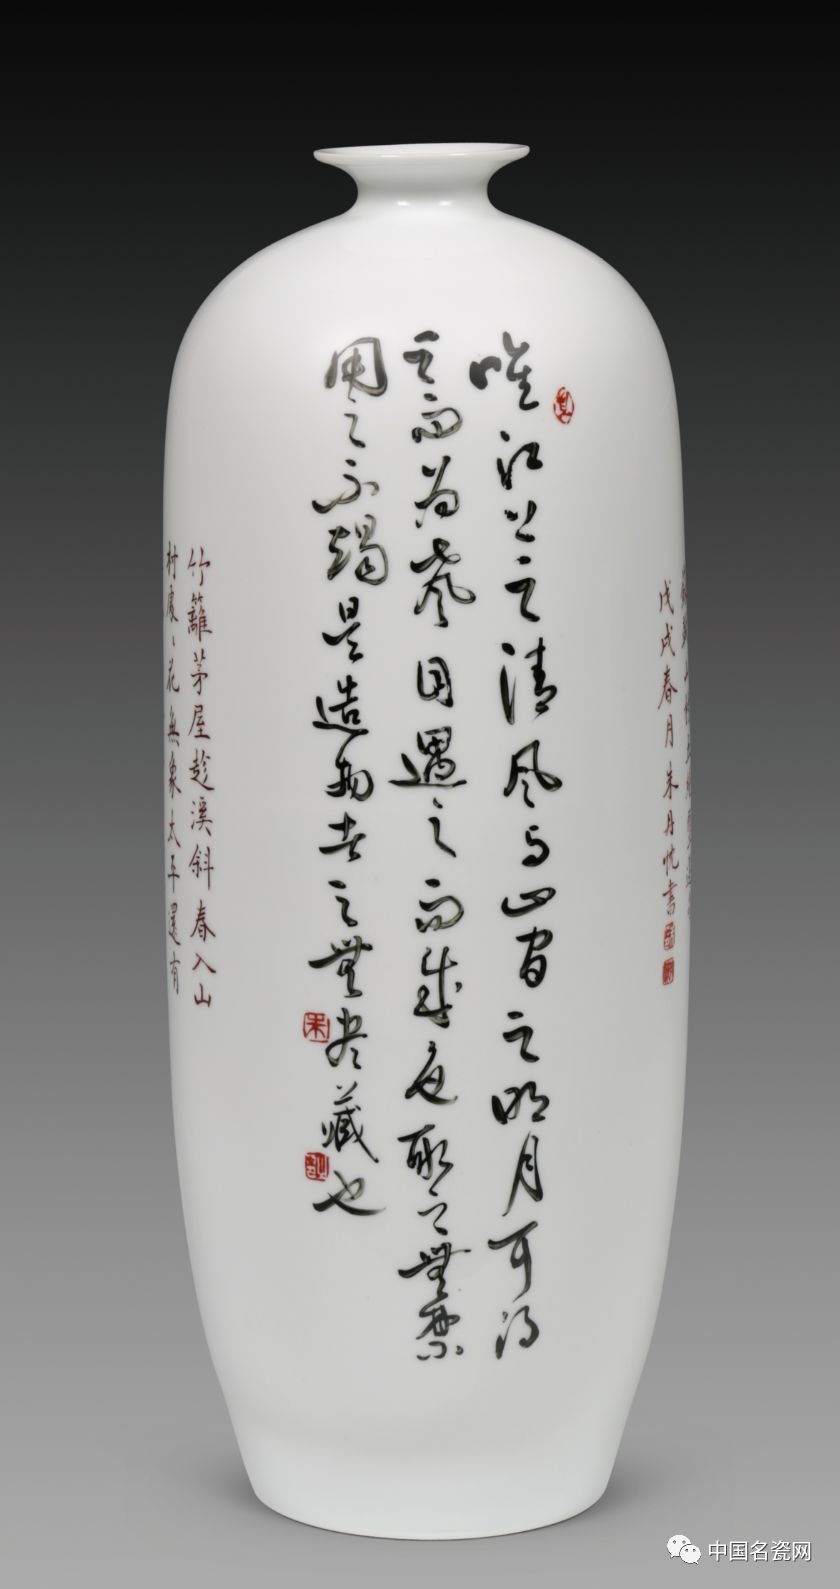 戊戌春月朱丹忱書
唯江上之清风与山間之明月耳得
之而為聲目遇之而成色取之無禁
用之不竭是造物者之無尽藏也
朱
竹籬茅屋趁溪斜春入山
村處、花無象太平還有
中国名瓷网